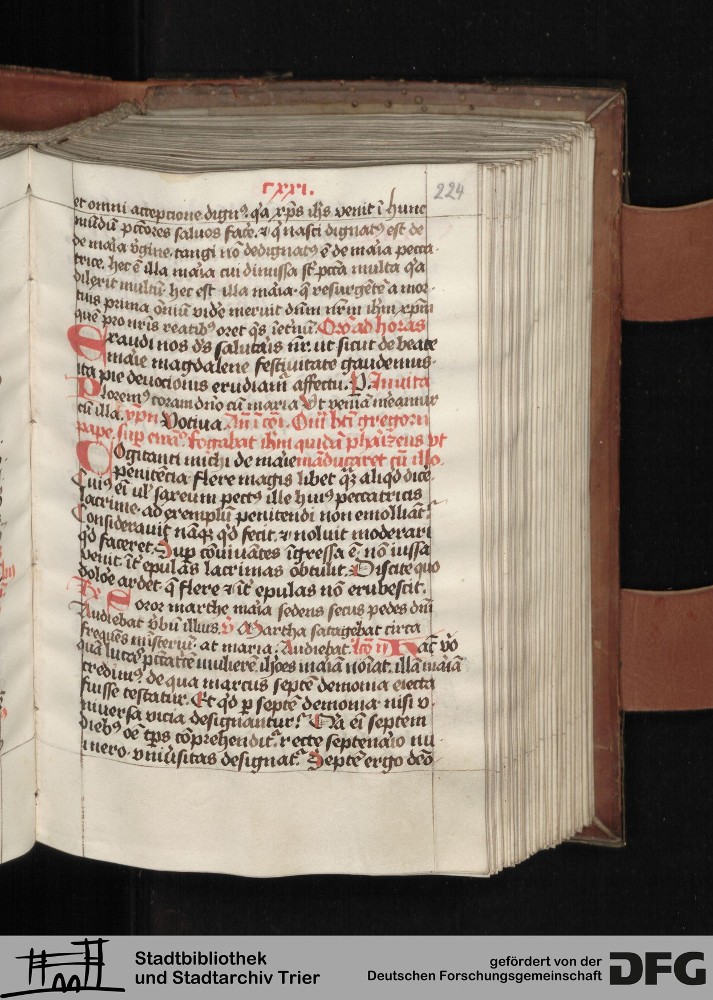 cxxi.
224
et omni acceptione dignꝯ. qͥa xp̄s ih̄s venit ī hunc
mūdū pctōres saluos facͤe. ⁊ qͥ nasci dignatꝯ est de
de maͥa v̓gine. tangi nō dedignatꝯ ē de maͥa pecca-
trice. hec ē illa maͥa cui dimissa st̄ pctā multa qͥa
dilexit multū. hec est illa maͥa. q̄ resurgētē a mor-
tuis prima oīm videͤ meruit dūm nr̄m ih̄m xp̄m
quē pro nr̄is reatibꝯ oret qs̄ īetnū. Oro͞ ad horas
Exaudi nos dꝰs salutaͥis nr̄. ut sicut de beate
maͥie magdalene festiuitate gaudemus.
ita pie deuocionis erudiamͬ affectu. P. Inuita
Ploremꝯ coram dn̄o cū maria Vt veniā meamur
cū illa. ypn̄ Votiua. An̄ ī eu͞. Om̄ bt̄i gregorii
pape. sup̄ ewā. Rogabat ih̄m quidā phaͥizeus vt
Cogitanti michi de maͥie māducaret cū illo.
penitēcia. flere magis libet qͣꝫ aliqͥd diceͤ.
Cuiꝯ eī ul̓ saxeum pectꝯ ille huiꝯ peccatricis
lacrime. ad exemplū penitendi non emolliāt.
Considerauit nāqꝫ qͥd fecit. ⁊ noluit moderari
qͥd faceret. Sup̄ cōuiuātes īgressa ē. nō iussa
venit. īt̓ epulas lacrimas obtulit. Discite quo
doloͤe ardet. q̄ flere ⁊ īt̓ epulas nō erubescit.
R̷. Soror marthe maͥia sedens secus pedes dn̄i
Audiebat v̓bū illius. V̷ Martha satagebat circa
frequēs mīsteriū. at maria. Audiebat. Lco͞ ii Hāc v̓o
quā lucas pctātcē mulierē. ioh̄es maͥiā noīat. illā maͥiā
credimꝯ. de qua marcus septē demonia eiecta
fuisse testatur. Et qͥd ꝑ septē demonia. nisi v-
niuersa vicia designantur. Qͥa eī septem
diebꝯ oē tp̄s cōprehendit᷑. recte septenaͥio nu
mero. vniūsitas designat᷑. Septē ergo deō
Stadtbibliothek
und Stadtarchiv Trier
gefördert von der
Deutschen Forschungsgemeinschaft
DFG